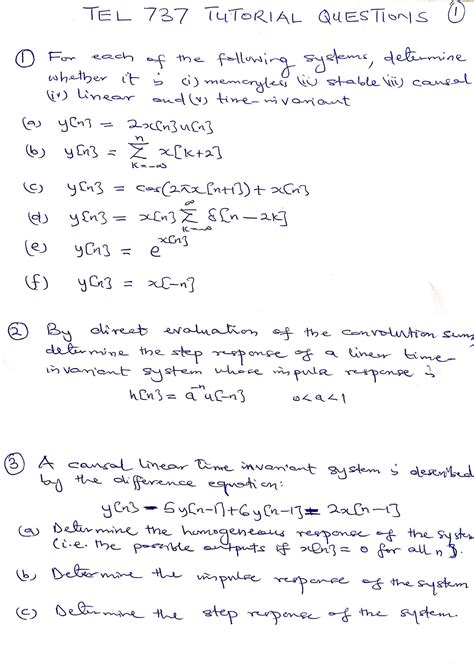 TEL 737 TUTORIAL QUESTIONS ①
① For each of the following systems, determine
whether it is (i) memoryless (ii) stable (iii) causal
(iv) linear and (v) time-invariant
(a) y[n] = 2x[n]u[n]
(b) y[n] = Σ_{k=-∞}^{n} x[k+2]
(c) y[n] = cos(2πx[n+1]) + x[n]
(d) y[n] = x[n] Σ_{k=-∞}^{∞} δ[n-2k]
(e) y[n] = e^{x[n]}
(f) y[n] = x[-n]
② By direct evaluation of the convolution sum,
determine the step response of a linear time-
invariant system whose impulse response is
h[n] = a^{-n}u[-n] 0<a<1
③ A causal linear time invariant system is described
by the difference equation:
y[n] - 5y[n-1] + 6y[n-1] = 2x[n-1]
(a) Determine the homogeneous response of the system
(i.e. the possible outputs if x[n] = 0 for all n).
(b) Determine the impulse response of the system
(c) Determine the step response of the system.